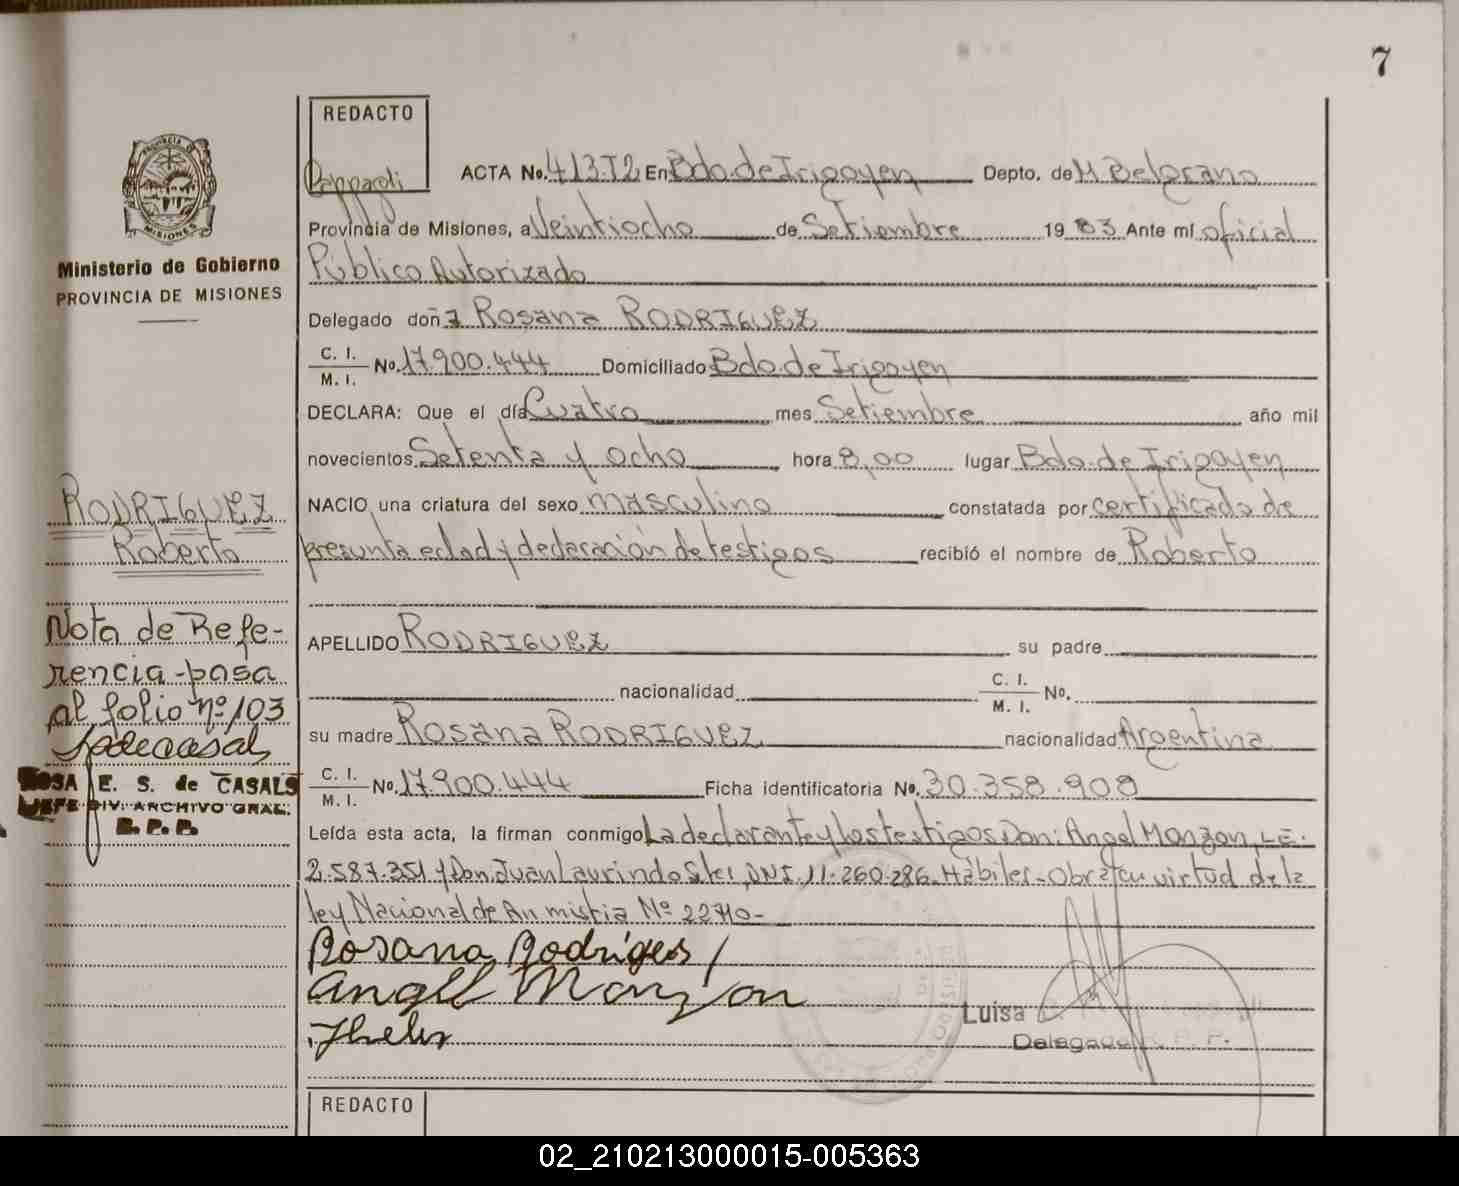 7
REDACTO
ACTA No. 413T2 En Bdo. de Irigoyen Depto. de M Belgrano
Provincia de Misiones, a Veintiocho de Setiembre 1983 Ante mí oficial
Público Autorizado
Delegado doña Rosana RODRIGUEZ
C. I.
M. I. No. 17.900.444 Domiciliado Bdo. de Irigoyen
DECLARA: Que el día Cuatro mes Setiembre año mil
novecientos Setenta y ocho hora 8,00 lugar Bdo. de Irigoyen
NACIO una criatura del sexo masculino constatada por certificado de
presunta edad y declaración de testigos recibió el nombre de Roberto
APELLIDO RODRIGUEZ su padre
nacionalidad C. I.
M. I. No.
su madre Rosana RODRIGUEZ nacionalidad Argentina
C. I.
M. I. No. 17.900.444 Ficha identificatoria No. 30.358.908
Leída esta acta, la firman conmigo La declarante y los testigos Don: Angel Monzon, LE.
2.587.351 y Don Juan Laurindo DNI. 11.260.286. Hábiles - Obra en virtud de la
ley Nacional de An mistia Nº 22710-
Rosana Rodrigues /
Angel Monzon
Luisa
Delegado R. P. P.
REDACTO
PROVINCIA DE MISIONES
Ministerio de Gobierno
PROVINCIA DE MISIONES
RODRIGUEZ
Roberto
Nota de Refe-
rencia - pasa
al folio nº 103
ROSA E. S. de CASALS
JEFE DIV. ARCHIVO GRAL.
R. P. P.
02_210213000015-005363